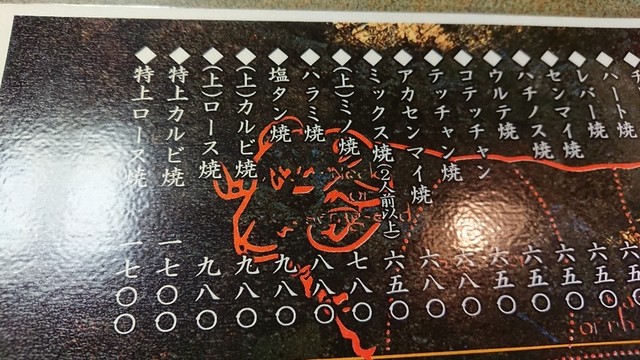 ◆ハート焼 六五〇
◆レバー焼 六五〇
◆センマイ焼 六五〇
◆ハチノス焼 六五〇
◆ウルテ焼 六五〇
◆コテッチャン 六五〇
◆テッチャン焼 六八〇
◆アカセンマイ焼 六八〇
◆ミックス焼(2人前以上) 六五〇
◆(上)ミノ焼 七八〇
◆ハラミ焼 八八〇
◆塩タン焼 九八〇
◆(上)カルビ焼 九八〇
◆(上)ロース焼 九八〇
◆特上カルビ焼 一七〇〇
◆特上ロース焼 一七〇〇